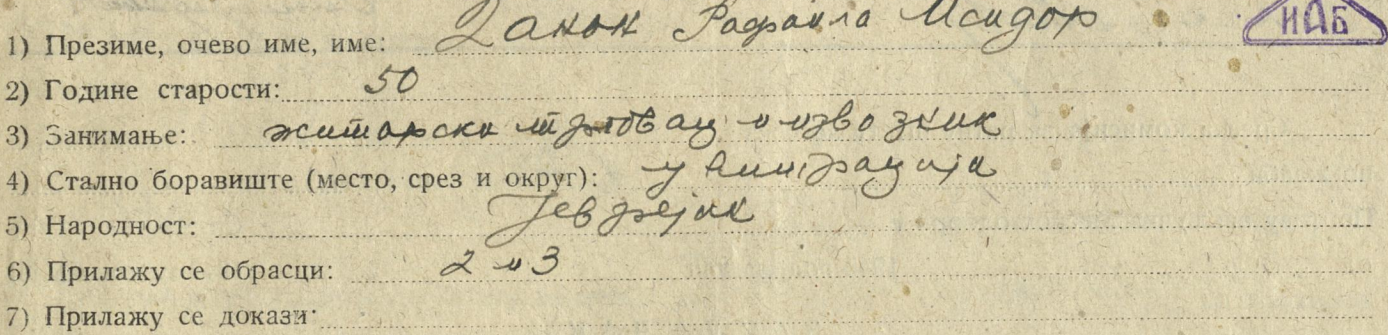 1) Презиме, очево име, име:Данон Рафаила Исидор
ИАБ
2) Године старости: 50
3) Занимање: житарски трговац и извозник
4) Стално боравиште (место, срез и округ): у емиграцији
5) Народност: Јеврејин
6) Прилажу се обрасци: 2 и 3
7) Прилажу се докази: